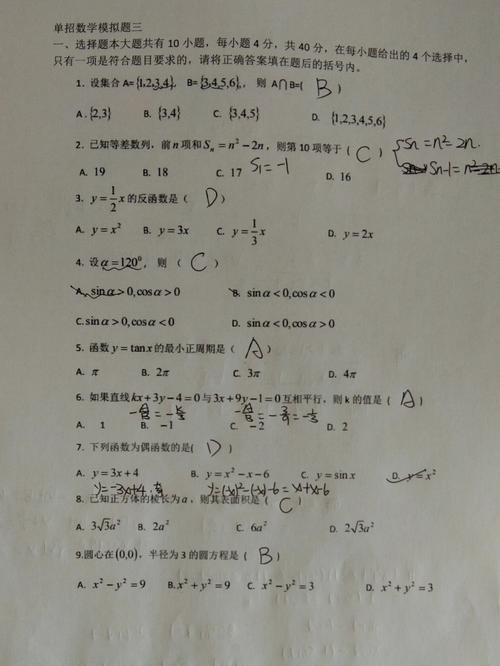 单招数学模拟题三
一、选择题本大题共有 10 小题，每小题 4 分，共 40 分，在每小题给出的 4 个选择中，
只有一项是符合题目要求的，请将正确答案填在题后的括号内。
1. 设集合 A={1,2,3,4}, B={3,4,5,6}, 则 A∩B=( B )
A. {2,3} B. {3,4} C. {3,4,5} D. {1,2,3,4,5,6}
2. 已知等差数列，前n项和Sₙ=n²−2n，则第 10 项等于 ( C ) Sn=n²-2n.
A. 19 B. 18 C. 17 S₁=-1 D. 16 Sn-1=n²-2n
3. y=1/2x的反函数是（ D ）
A. y=x² B. y=3x C. y=1/3x D. y=2x
4. 设α=120⁰， 则 （ C ）
A. sinα>0,cosα>0 B. sinα<0,cosα<0
C. sinα>0,cosα<0 D. sinα<0,cosα>0
5. 函数y=tanx的最小正周期是（ A ）
A. π B. 2π C. 3π D. 4π
6. 如果直线kx+3y−4=0与3x+9y−1=0互相平行，则 k 的值是（ A ）
-A/B=-k/3 -A/B=-3/9=-1/3
A. 1 B. −1 C. −2 D. 2
7. 下列函数为偶函数的是( D )
A. y=3x+4 B. y=x²−x−6 C. y=sinx D. y=x²
y=-3x+4 y=(-x)²-(-x)-6=x²+x-6
8. 已知正方体的棱长为a，则其表面积是（ C ）
A. 3√3a² B. 2a² C. 6a² D. 2√3a²
9.圆心在(0,0)，半径为 3 的圆方程是（ B ）
A. x²−y²=9 B. x²+y²=9 C. x²−y²=3 D. x²+y²=3